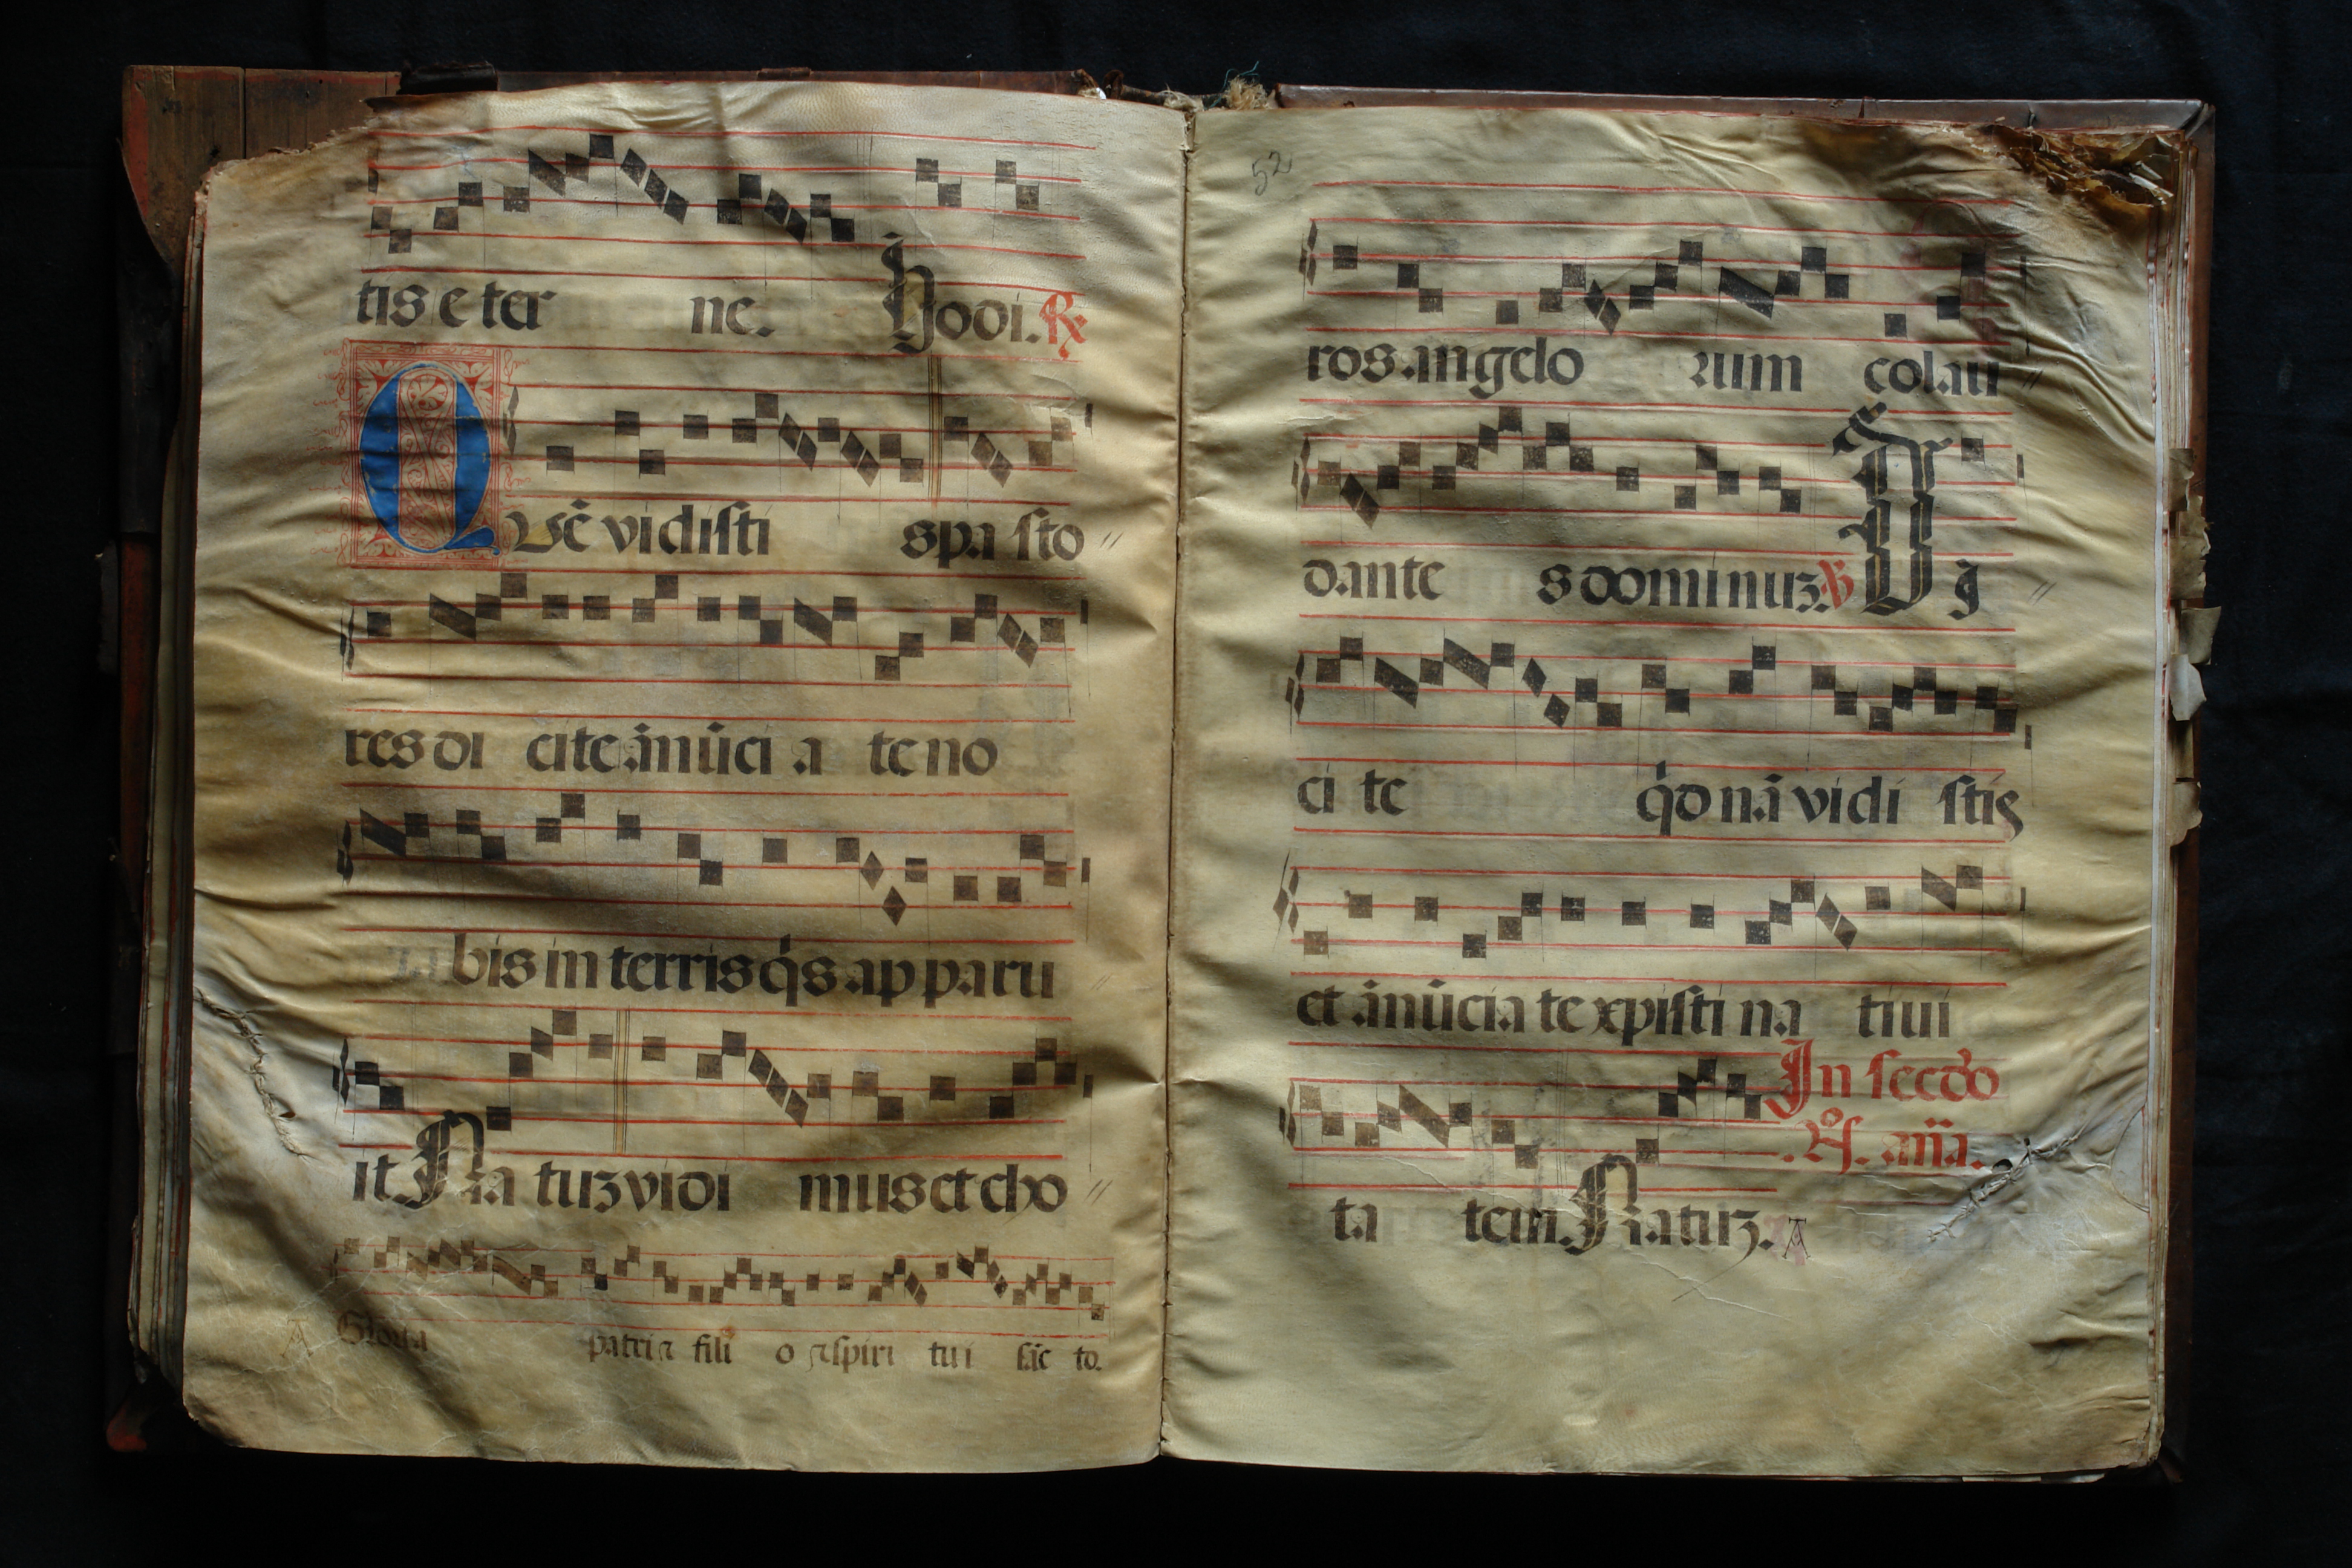 tis e ter ne. hodi. ℟
Quē vidisti spa sto //
res di cite. ānūci a te no
bis in terris q̇s ap paru
it. Na tuꝫ vidi mus et cho //
A Gloria patri a fili o a spiri tui sāc to.
52
ros. angelo rum colau //
dante s dominuꝫ. ℣ Di //
ci te q̇d nā vidi stis
et ānūcia te xpisti na tiui
In secdo
ta tem. Natuꝫ. A